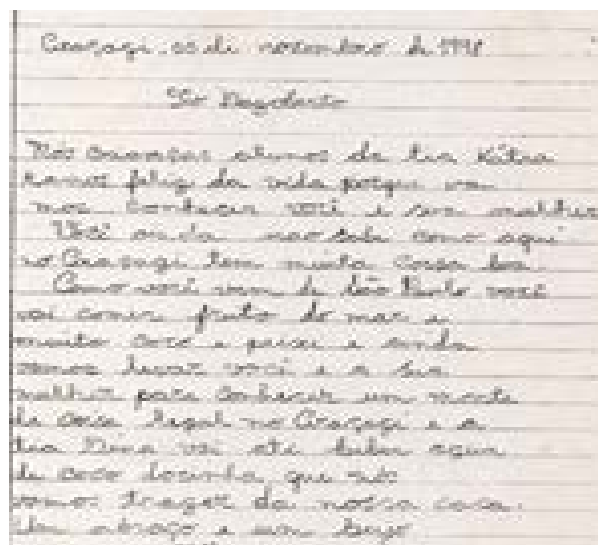 Araçagi, 25 de novembro de 1998
Tio Dagoberto
Nós crianças alunos da tia Kátia
tamos feliz da vida porque va
mos conhecer você e sua mulher
Você ainda nao sabe como aqui
no Araçagi tem muita coisa boa.
Como você vem de São Paulo você
vai comer fruto do mar e
muito coco e peixe e ainda
vamos levar você e a sua
mulher para conhecer um monte
de coisa legal no Araçagi e a
tia Nina vai até beber agua
de coco docinha, que nós
vamos trazer da nossa casa.
Um abraço e um beijo